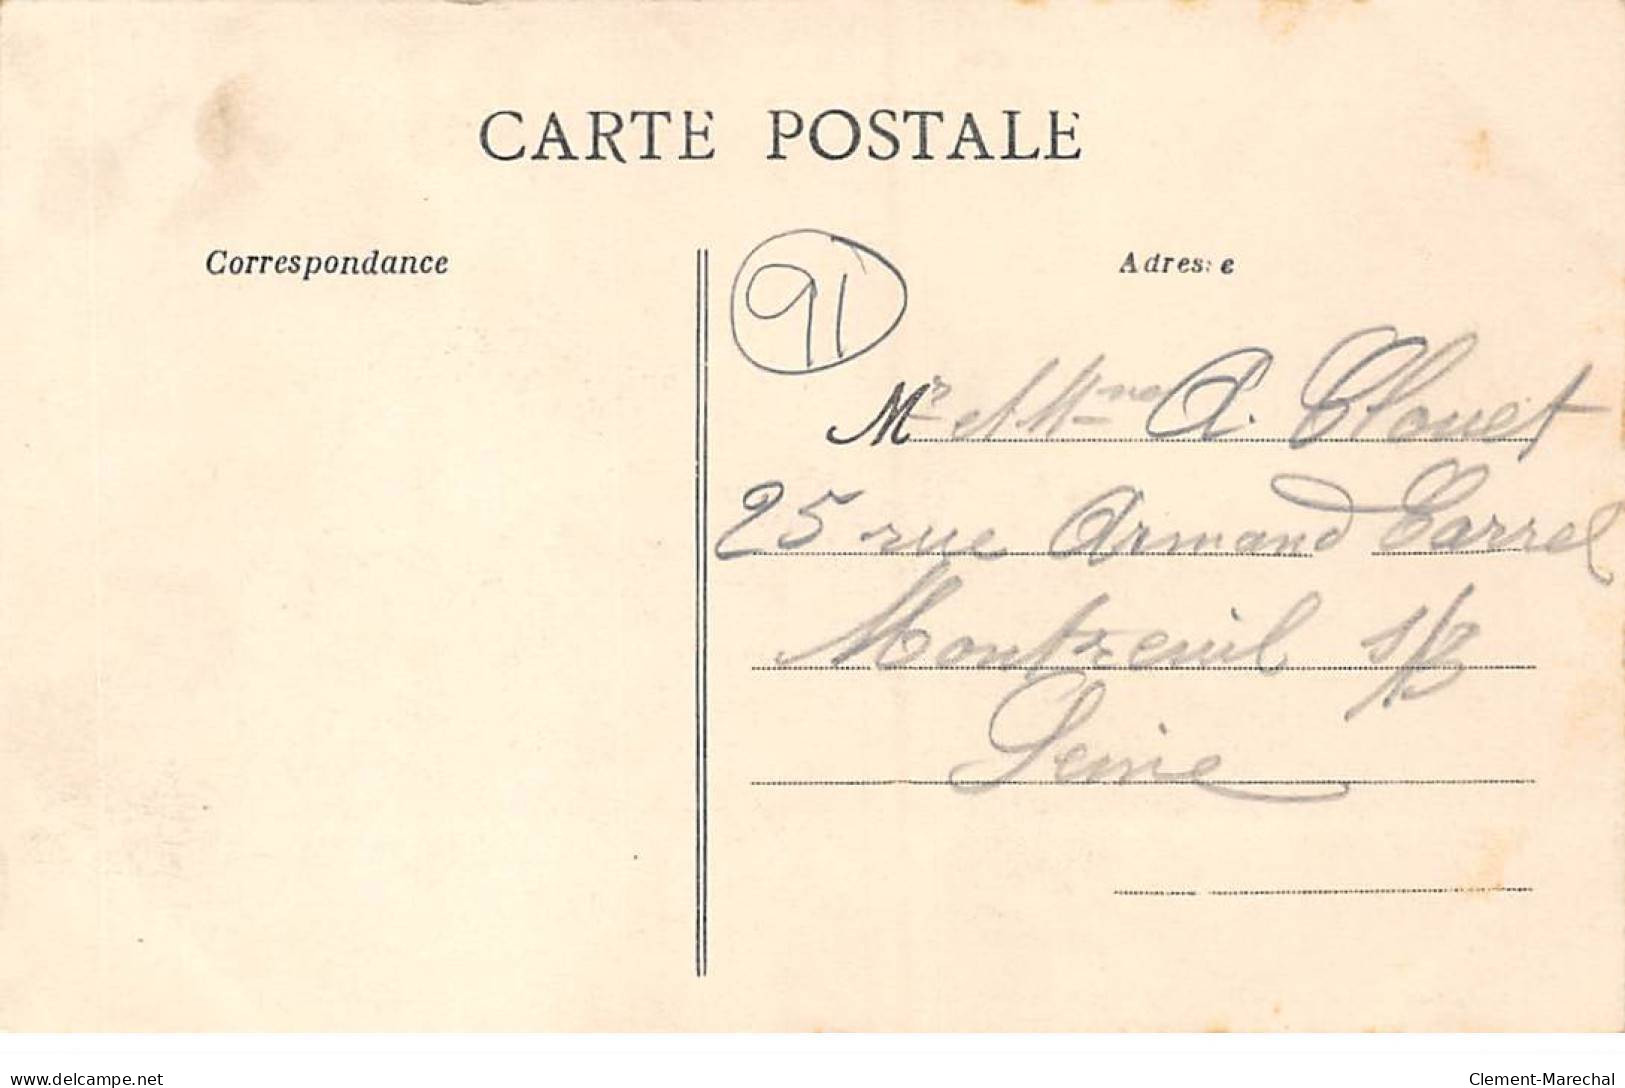 CARTE POSTALE
Correspondance
Adresse
91
Mr et Mme A. Clouet
25 rue Armand Carrel
Montreuil s/B
Seine
delcampe.net
Clement-Marechal